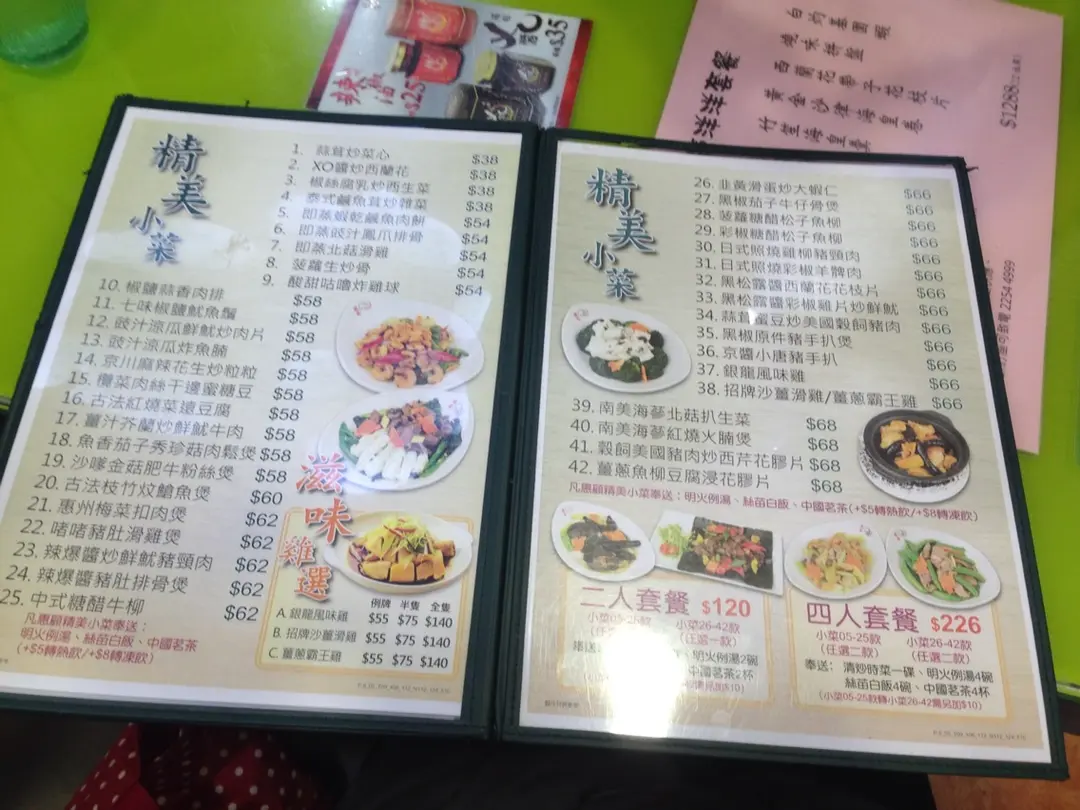 辣
油
$25
XO
醬
$35
白灼基圍蝦
燒味拼盤
西蘭花帶子花枝片
黃金沙律海皇卷
竹笙海皇羹
洋洋套餐
$1288
2254 4999
精美小菜
1. 蒜茸炒菜心 $38
2. XO醬炒西蘭花 $38
3. 椒絲腐乳炒西生菜 $38
4. 泰式鹹魚茸炒雜菜 $38
5. 即蒸蝦乾鹹魚肉餅 $54
6. 即蒸豉汁鳳爪排骨 $54
7. 即蒸北菇滑雞 $54
8. 菠蘿生炒骨 $54
9. 酸甜咕嚕炸雞球 $54
10. 椒鹽蒜香肉排 $58
11. 七味椒鹽魷魚鬚 $58
12. 豉汁涼瓜鮮魷炒肉片 $58
13. 豉汁涼瓜炸魚腩 $58
14. 京川麻辣花生炒粒粒 $58
15. 欖菜肉絲干邊蜜糖豆 $58
16. 古法紅燒菜遠豆腐 $58
17. 薑汁芥蘭炒鮮魷牛肉 $58
18. 魚香茄子秀珍菇肉鬆煲 $58
19. 沙嗲金菇肥牛粉絲煲 $58
20. 古法枝竹炆鯧魚煲 $60
21. 惠州梅菜扣肉煲 $62
22. 啫啫豬肚滑雞煲 $62
23. 辣爆醬炒鮮魷豬頸肉 $62
24. 辣爆醬豬肚排骨煲 $62
25. 中式糖醋牛柳 $62
凡惠顧精美小菜奉送：
明火例湯、絲苗白飯、中國茗茶
(+$5轉熱飲/+$8轉凍飲)
滋味雞選
例牌 半隻 全隻
A. 銀龍風味雞 $55 $75 $140
B. 招牌沙薑滑雞 $55 $75 $140
C. 薑蔥霸王雞 $55 $75 $140
精美小菜
26. 韭黃滑蛋炒大蝦仁 $66
27. 黑椒茄子牛仔骨煲 $66
28. 菠蘿糖醋松子魚柳 $66
29. 彩椒糖醋松子魚柳 $66
30. 日式照燒雞柳豬頸肉 $66
31. 日式照燒彩椒羊髀肉 $66
32. 黑松露醬西蘭花花枝片 $66
33. 黑松露醬彩椒雞片炒鮮魷 $66
34. 蒜茸蜜豆炒美國穀飼豬肉 $66
35. 黑椒原件豬手扒煲 $66
36. 京醬小唐豬手扒 $66
37. 銀龍風味雞 $66
38. 招牌沙薑滑雞/薑蔥霸王雞 $66
39. 南美海蔘北菇扒生菜 $68
40. 南美海蔘紅燒火腩煲 $68
41. 穀飼美國豬肉炒西芹花膠片 $68
42. 薑蔥魚柳豆腐浸花膠片 $68
凡惠顧精美小菜奉送：明火例湯、絲苗白飯、中國茗茶(+$5轉熱飲/+$8轉凍飲)
二人套餐 $120
小菜05-25款 小菜26-42款
(任選一款)
奉送： 明火例湯2碗
中國茗茶2杯
四人套餐 $226
小菜05-25款 小菜26-42款
(任選二款) (任選二款)
奉送： 清炒時菜一碟、明火例湯4碗
絲苗白飯4碗、中國茗茶4杯
(小菜05-25款轉小菜26-42需另加$10)